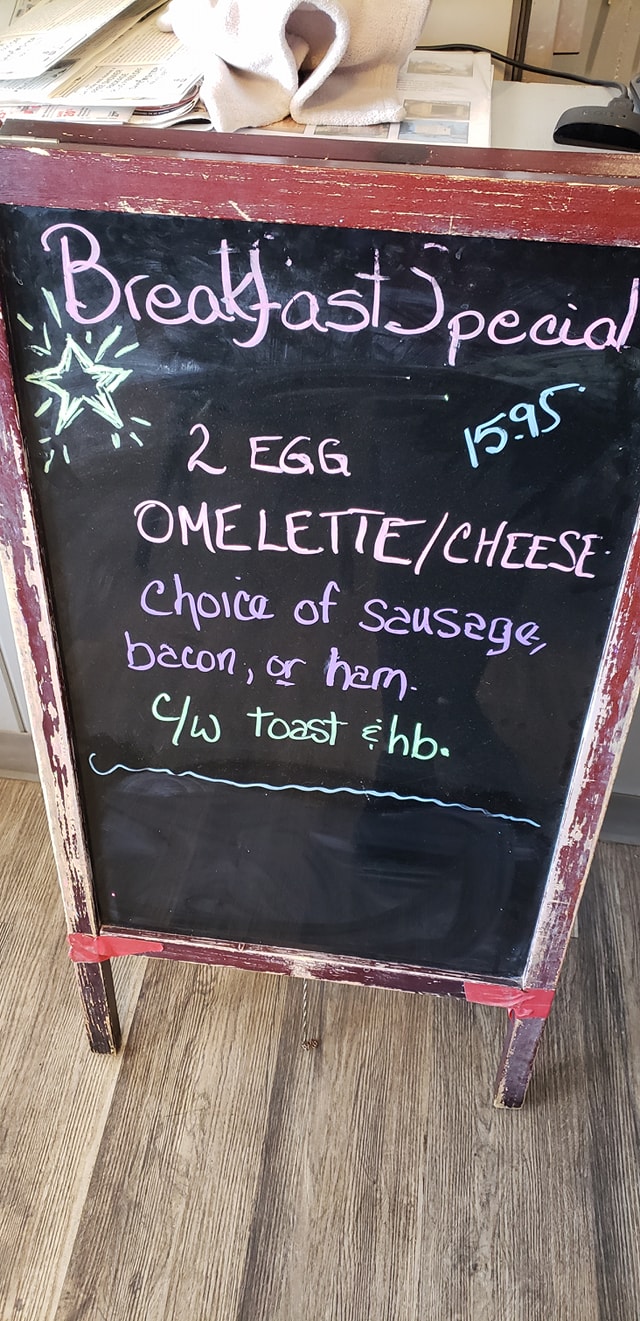 Breakfast Special
15.95
2 EGG
OMELETTE/CHEESE
Choice of sausage,
bacon, or ham.
C/W toast & hb.